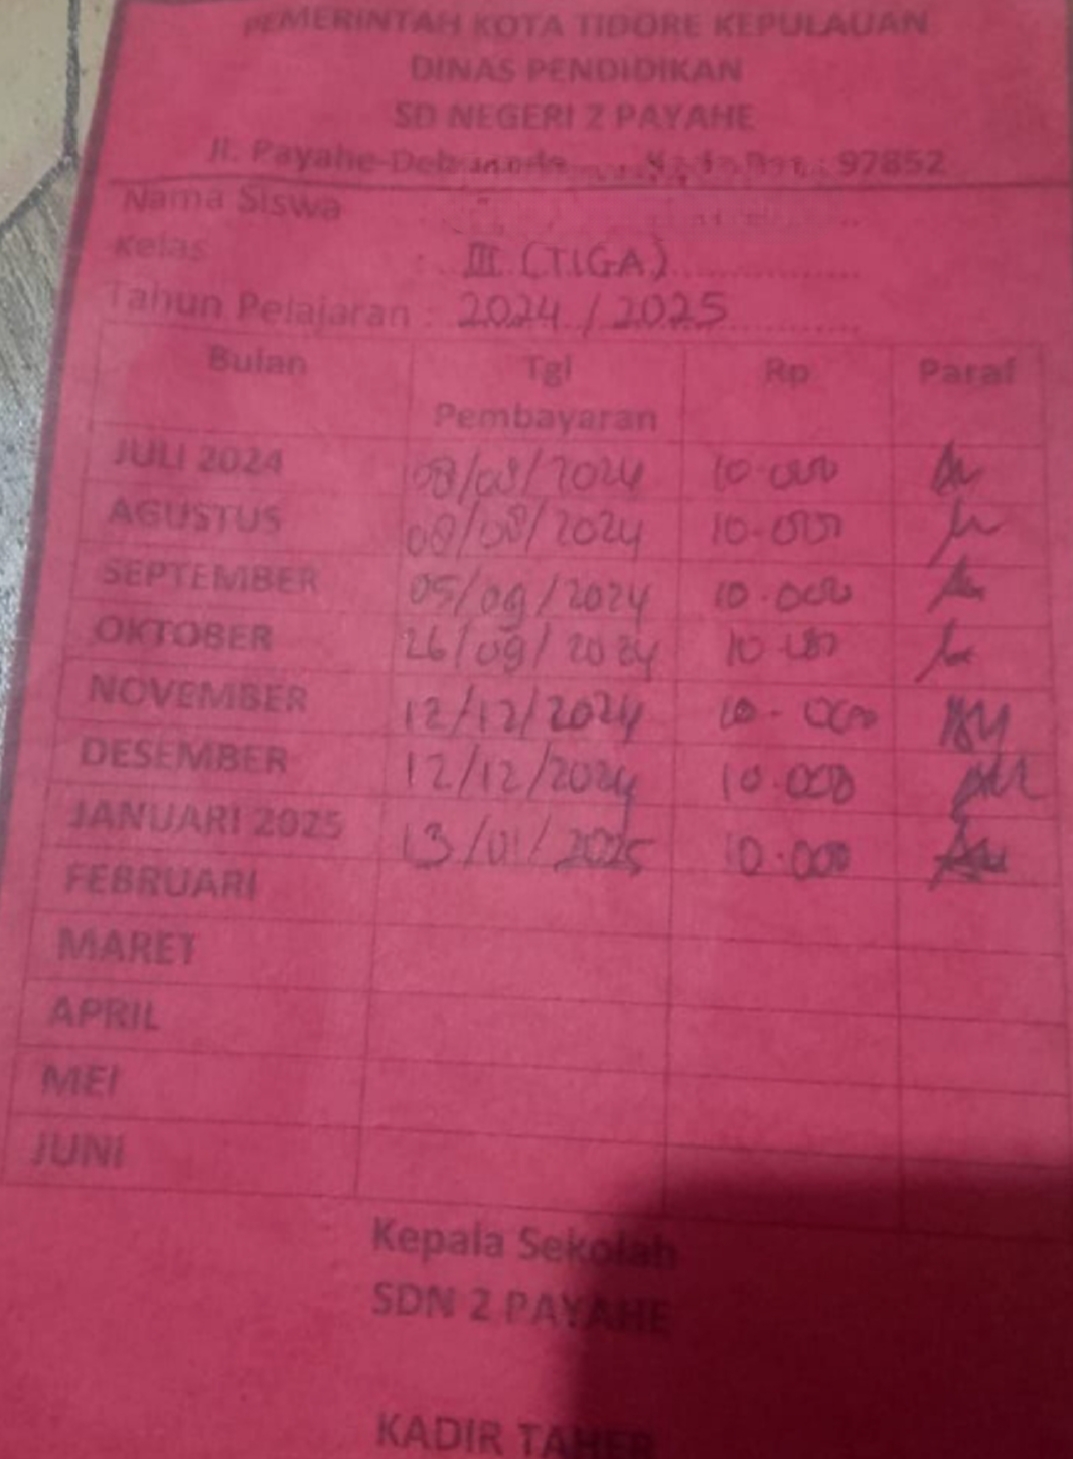 PEMERINTAH KOTA TIDORE KEPULAUAN
DINAS PENDIDIKAN
SD NEGERI 2 PAYAHE
Jl. Payahe-Dehepodo Kode Pos : 97852
Nama Siswa
Kelas : III (TIGA)
Tahun Pelajaran : 2024 / 2025
Bulan Tgl Pembayaran Rp Paraf
JULI 2024 08/08/2024 10.000
AGUSTUS 08/08/2024 10.000
SEPTEMBER 05/09/2024 10.000
OKTOBER 26/09/2024 10.000
NOVEMBER 12/12/2024 10.000
DESEMBER 12/12/2024 10.000
JANUARI 2025 13/01/2025 10.000
FEBRUARI
MARET
APRIL
MEI
JUNI
Kepala Sekolah
SDN 2 PAYAHE
KADIR TAHER